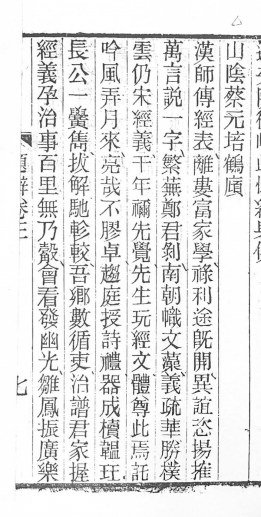 山陰蔡元培鶴廎
漢師傳經表離婁富家學祿利途旣開異誼恣揚搉
萬言說一字繁蕪鄭君剝南朝幟文藻義疏華勝樸
雲仍宋經義千年禰先覺先生玩經文體尊此焉託
吟風弄月來亮哉不膠卓趨庭授詩禮器成櫝韞玨
長公一臠雋拔解馳軫較吾鄉數循吏治譜君家握
經義孕治事百里無乃觳會看發幽光雛鳳振廣樂
題辭卷
七